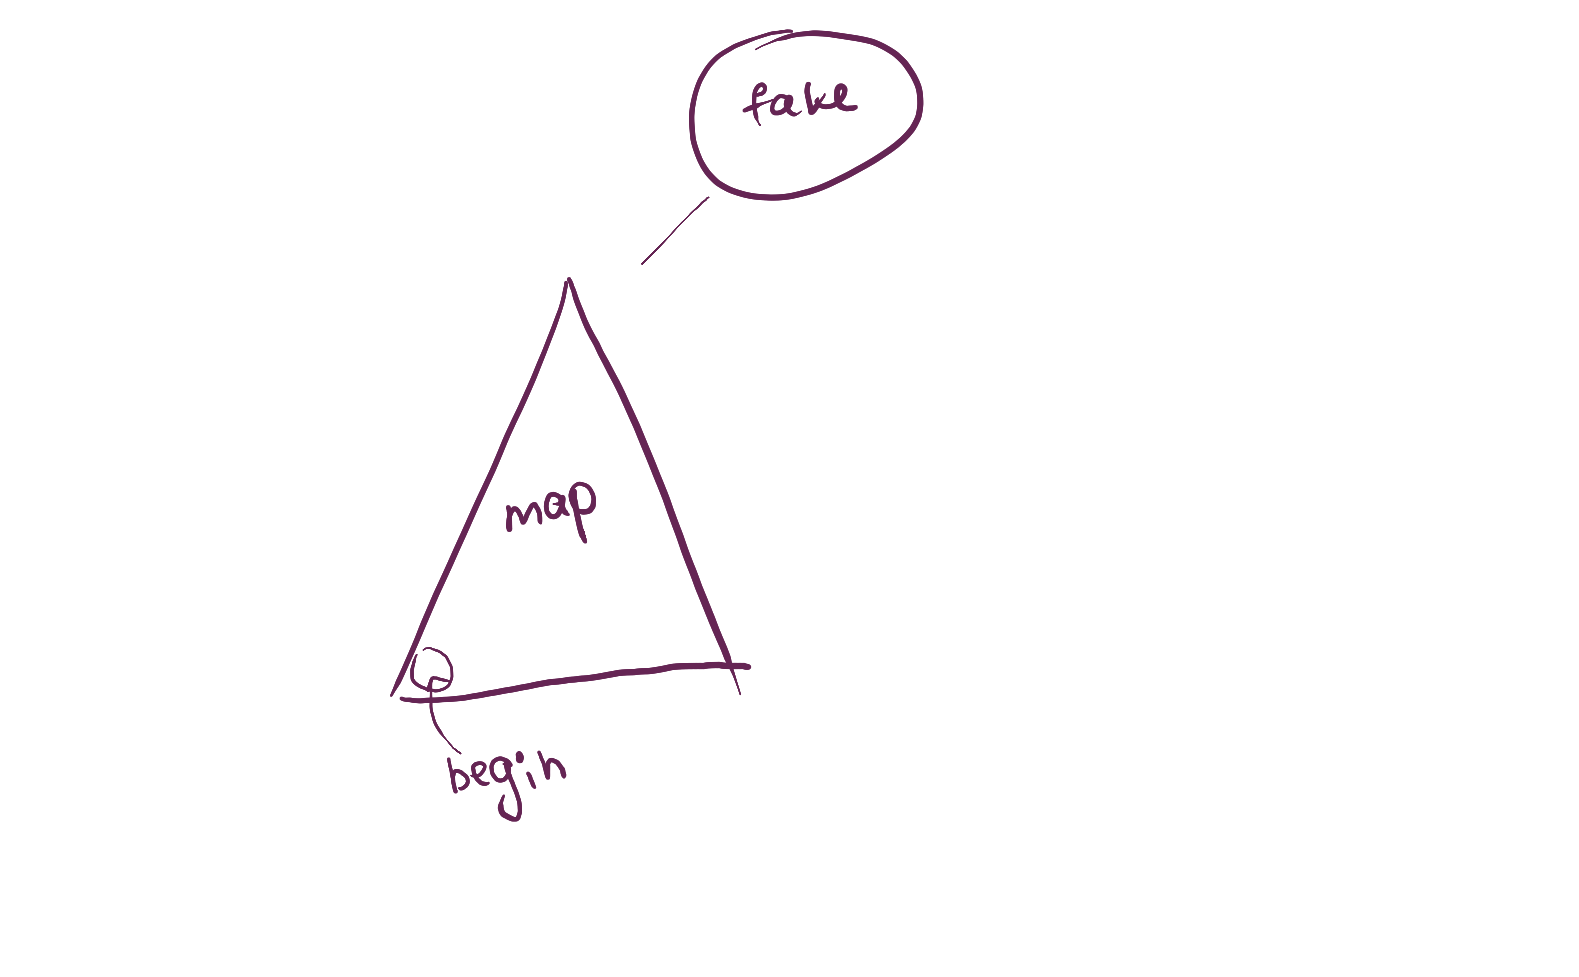 fake
map
begin